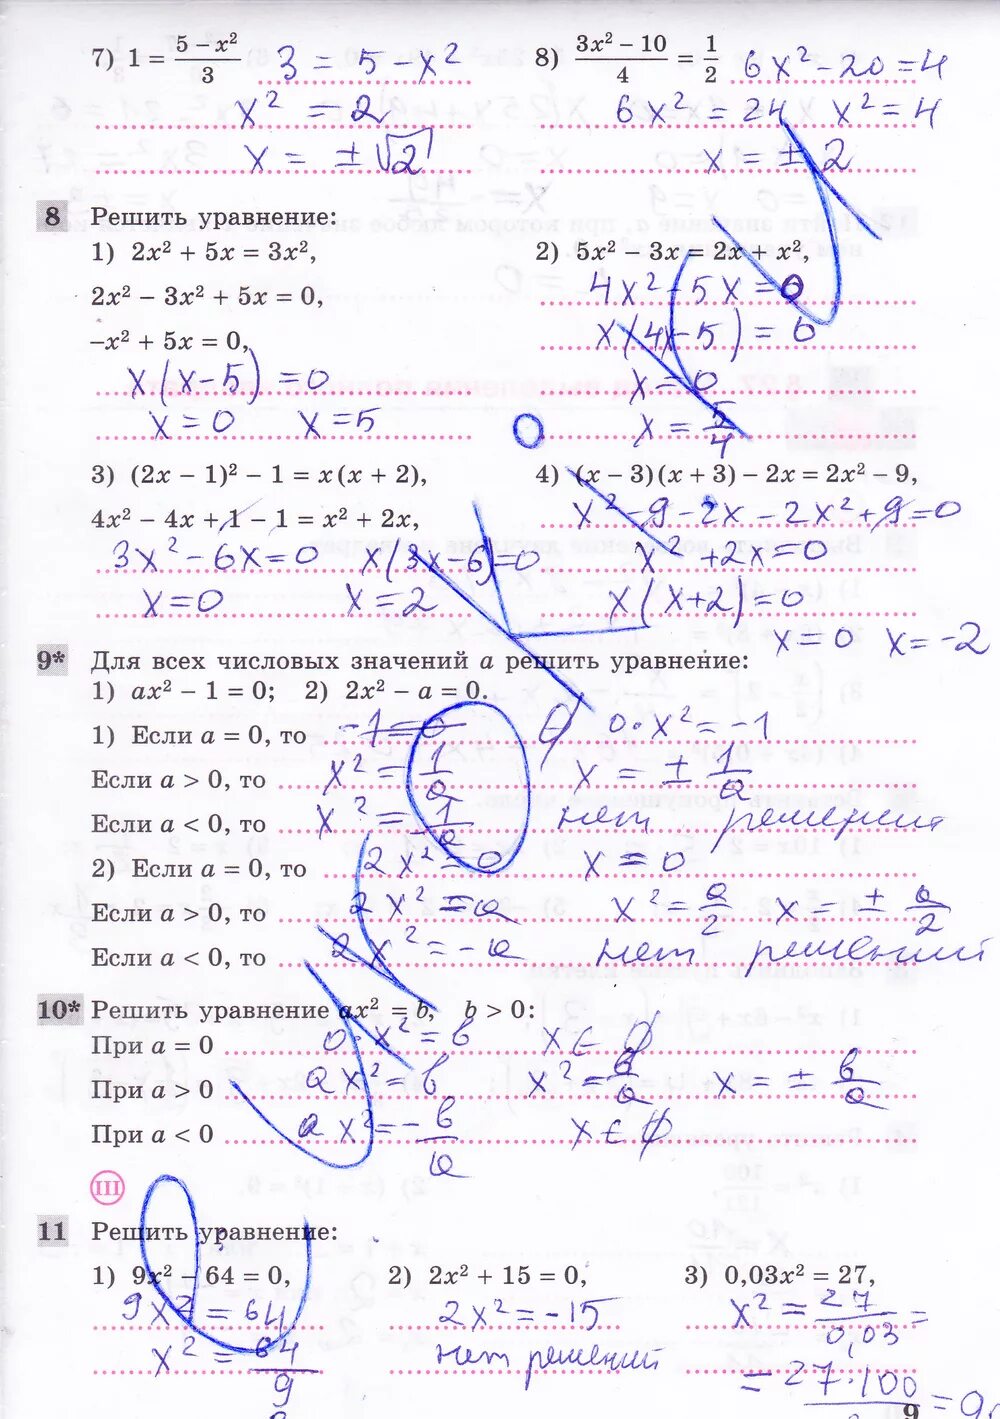 7) 1 = (5 – x²)/3   3 = 5 – x²
x² = 2
x = ±√2
8) (3x² – 10)/4 = 1/2   6x² – 20 = 4
6x² = 24   x² = 4
x = ± 2
8 Решить уравнение:
1) 2x² + 5x = 3x²,
2x² – 3x² + 5x = 0,
–x² + 5x = 0,
x(x–5) = 0
x = 0   x = 5
2) 5x² – 3x = 2x + x²,
4x² – 5x = 0
x(4x–5) = 0
x = 0
x = 5/4
3) (2x – 1)² – 1 = x(x + 2),
4x² – 4x + 1 – 1 = x² + 2x,
3x² – 6x = 0   x(3x–6) = 0
x = 0   x = 2
4) (x – 3)(x + 3) – 2x = 2x² – 9,
x² – 9 – 2x – 2x² + 9 = 0
x² + 2x = 0
x(x+2) = 0
x = 0   x = –2
9* Для всех числовых значений a решить уравнение:
1) ax² – 1 = 0;   2) 2x² – a = 0.
1) Если a = 0, то –1 = 0   ∅   0·x² = –1
Если a > 0, то x² = 1/a   x = ± 1/a
Если a < 0, то x² = 1/a   нет решений
2) Если a = 0, то 2x² = 0   x = 0
Если a > 0, то 2x² = a   x² = a/2   x = ± a/2
Если a < 0, то 2x² = –a   нет решений
10* Решить уравнение ax² = b,   b > 0:
При a = 0   0·x² = b   x ∈ ∅
При a > 0   ax² = b   x² = b/a   x = ± b/a
При a < 0   ax² = – b/a   x ∈ ∅
III
11 Решить уравнение:
1) 9x² – 64 = 0,
9x² = 64
x² = 64/9
2) 2x² + 15 = 0,
2x² = –15
нет решений
3) 0,03x² = 27,
x² = 27/0,03 =
= 27·100
9